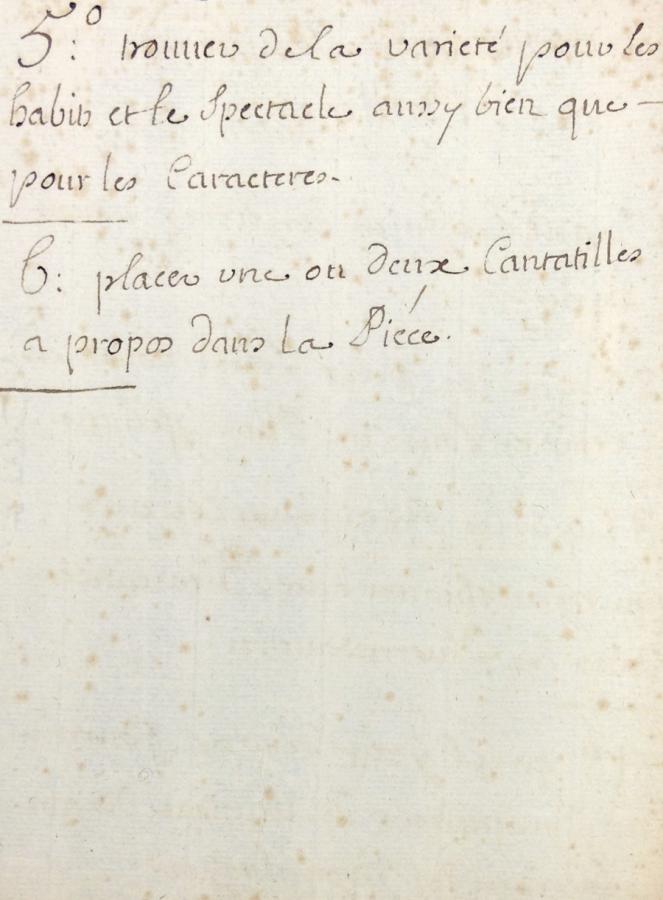 5:º trouver de la varieté pour les
habits et le Spectacle aussy bien que -
pour les Caracteres.
6: placer une ou deux Cantatilles
a propos dans la Piéce.